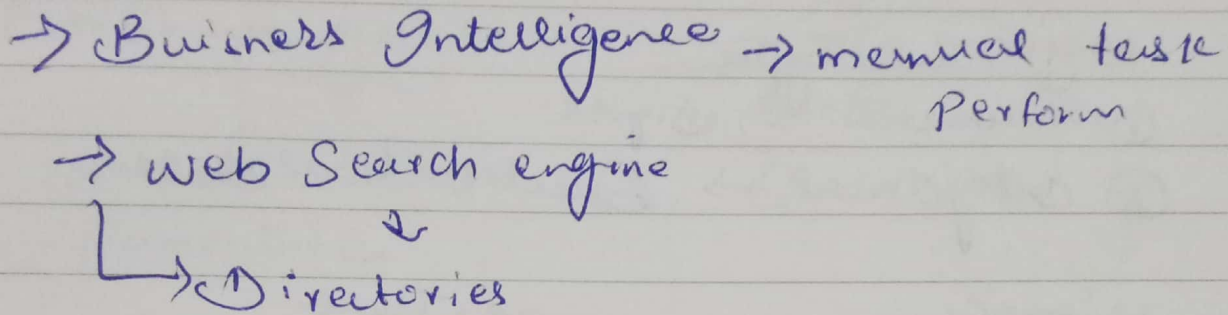 → Buisness Intelligence → manual task
Perform
→ web Search engine
↓
→ Directories